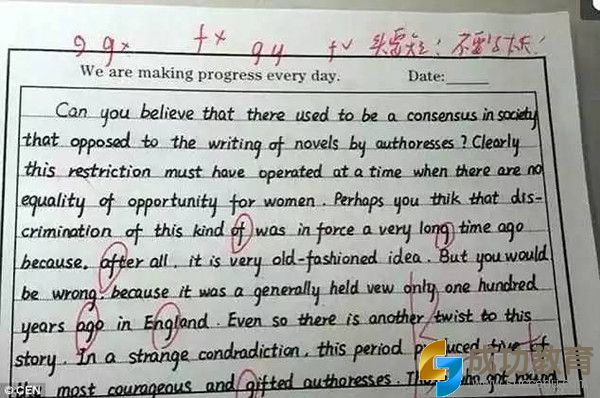 g gx fx gy fv 头需短! 不需
We are making progress every day. Date:
Can you believe that there used to be a consensus in society
that opposed to the writing of novels by authoresses? Clearly
this restriction must have operated at a time when there are no
equality of opportunity for women. Perhaps you thik that dis-
crimination of this kind of was in force a very long time ago
because, after all, it is very old-fashioned idea. But you would
be wrong, because it was a generally held vew only one hundred
years ago in England. Even so there is another twist to this
story. In a strange condradiction, this period produced five of
most courageous and gifted authoresses. got round
成功教育
©CEN